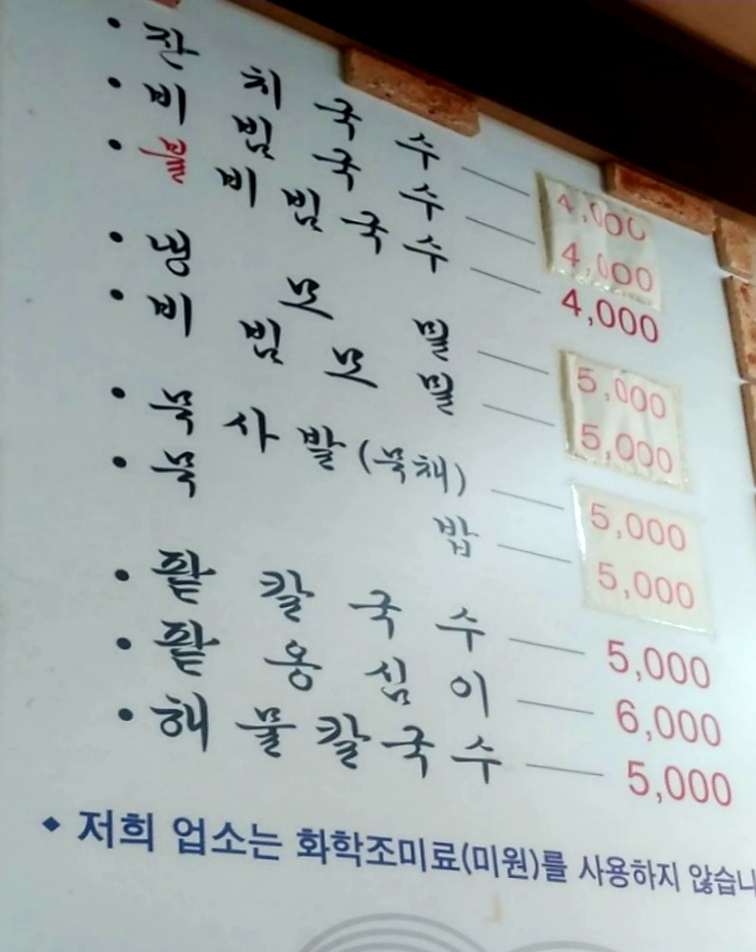 • 잔치국수 — 4,000
• 비빔국수 — 4,000
• 불비빔국수 — 4,000
• 냉모밀 — 5,000
• 비빔모밀 — 5,000
• 묵사발(묵채) — 5,000
• 묵밥 — 5,000
• 팥칼국수 — 5,000
• 팥옹심이 — 6,000
• 해물칼국수 — 5,000
◆ 저희 업소는 화학조미료(미원)를 사용하지 않습니